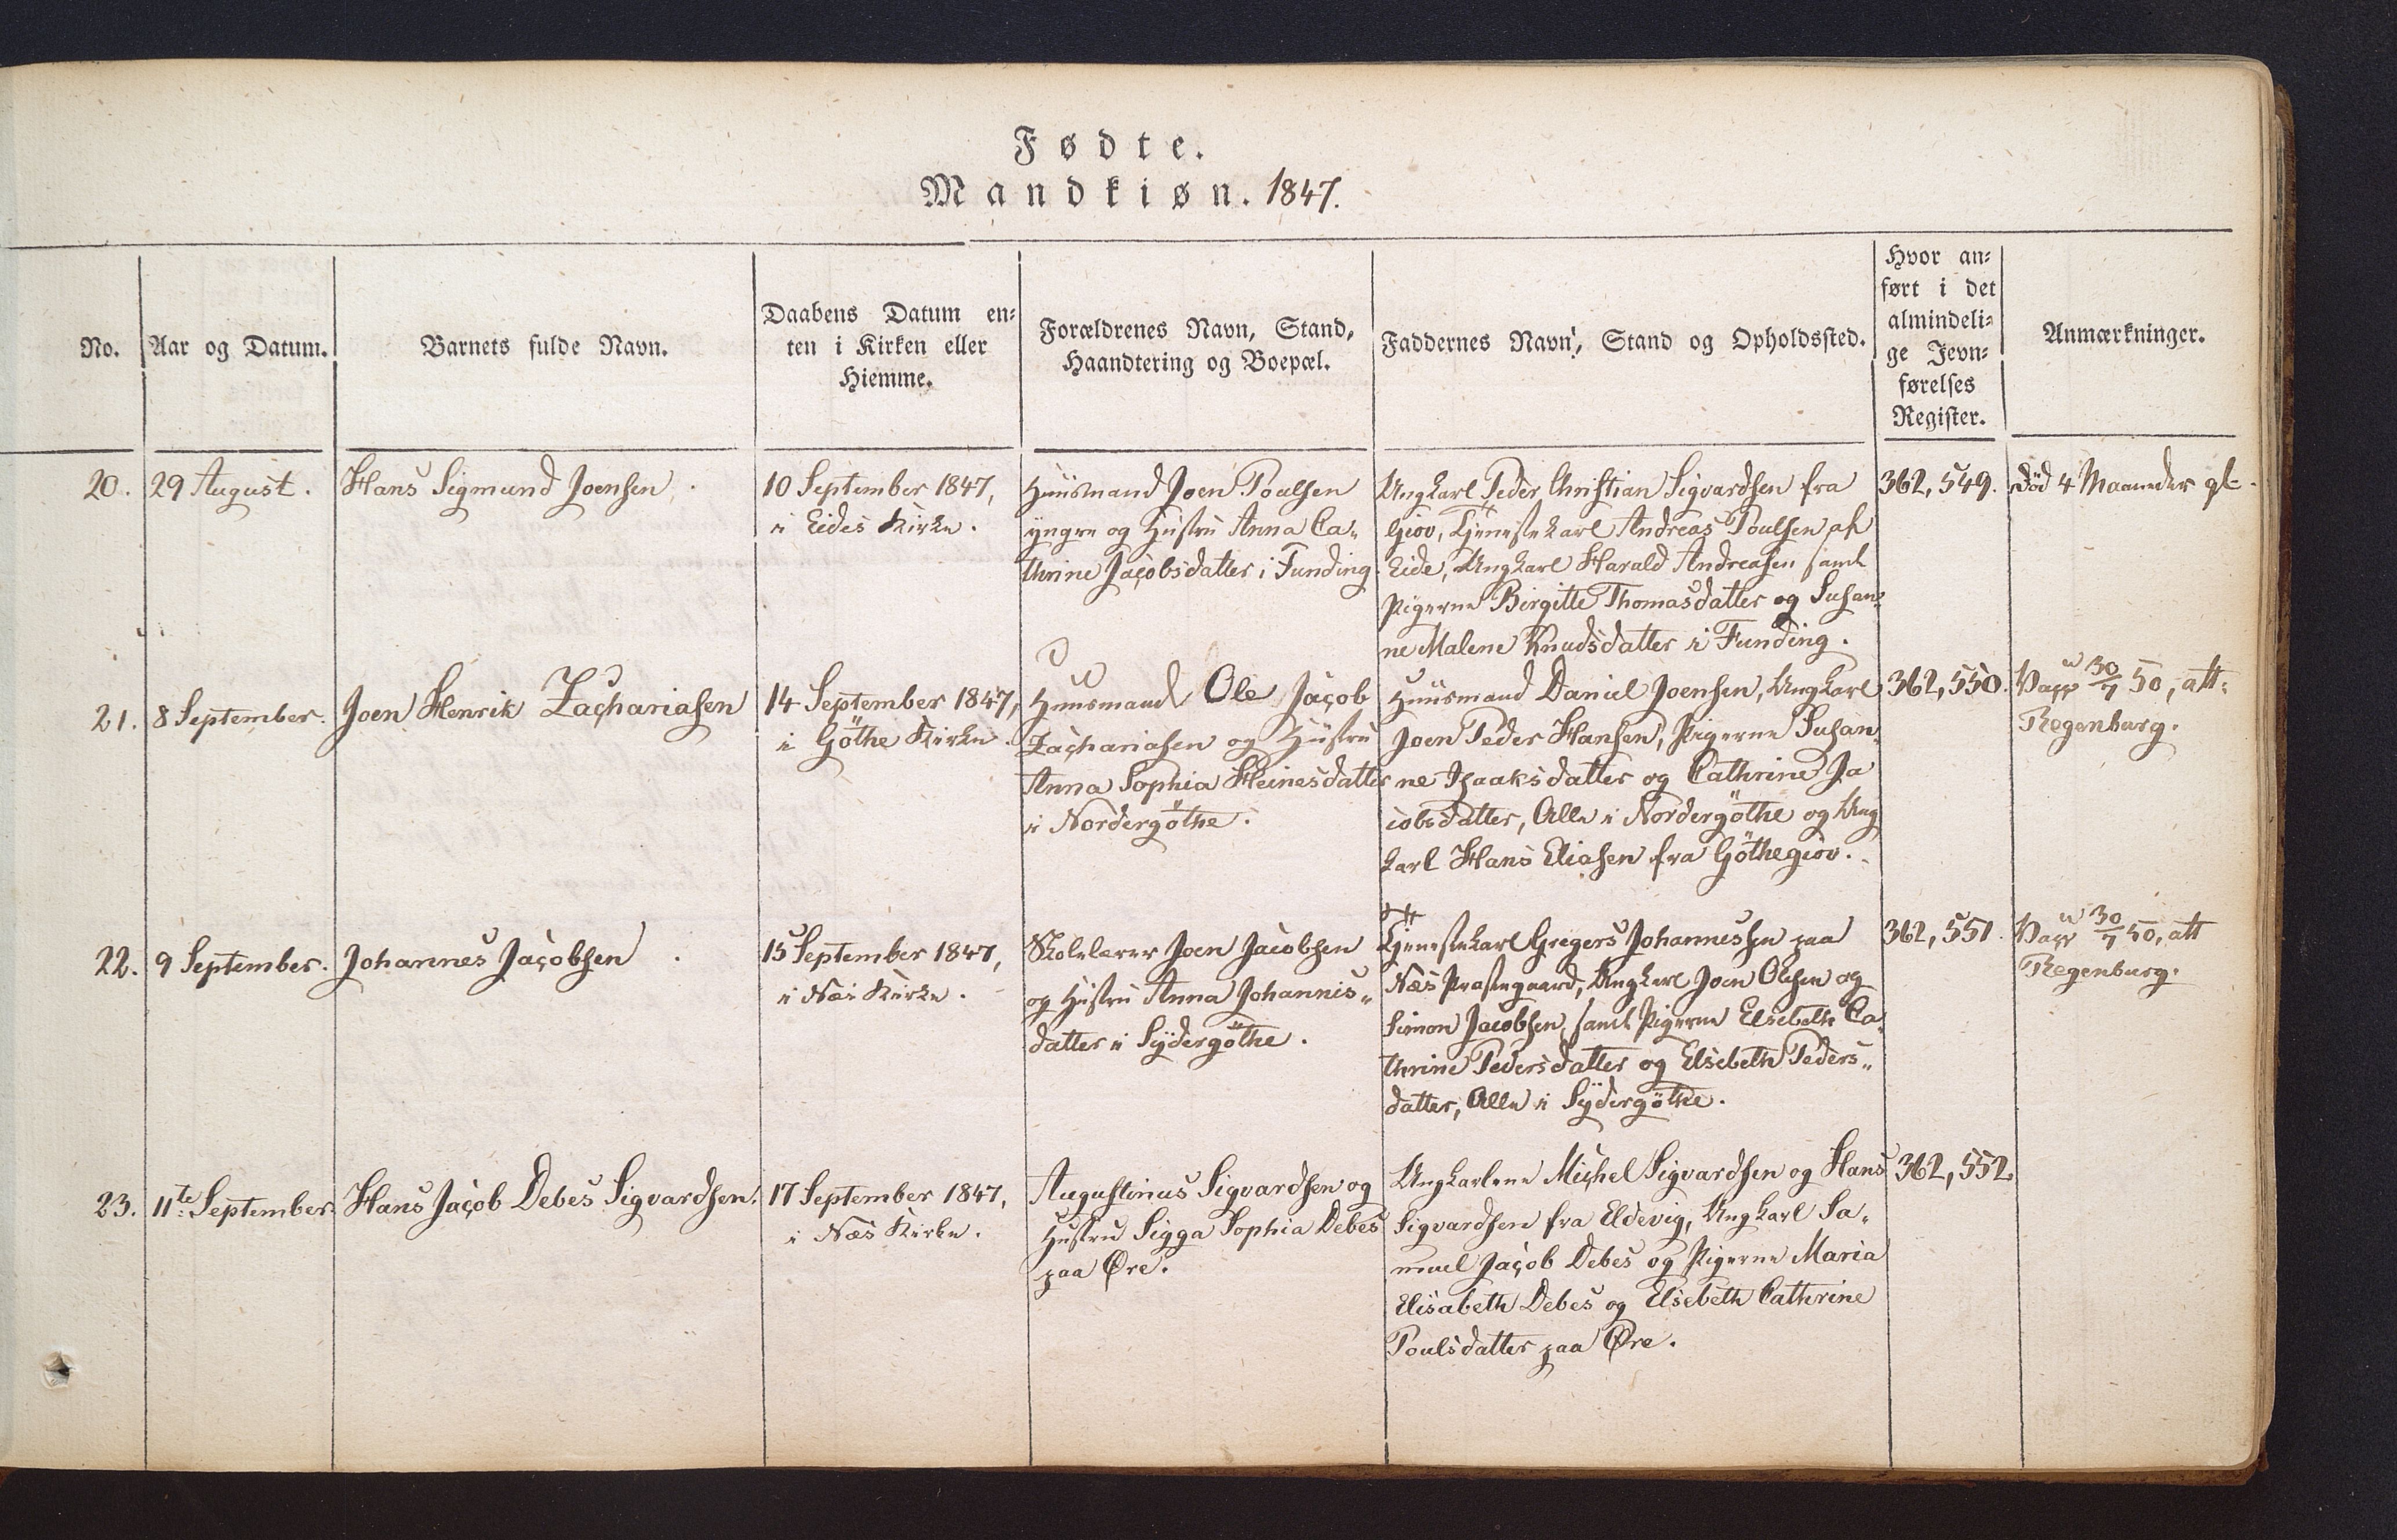 Fødte.
Mandkiøn. 1847.
No.
Aar og Datum.
Barnets fulde Navn.
Daabens Datum en-
ten i Kirken eller
Hiemme.
Forældrenes Navn, Stand,
Haandtering og Boepæl.
Faddernes Navn, Stand og Opholdssted.
Hvor an-
ført i det
almindeli-
ge Jevn-
førelses
Register.
Anmærkninger.
20.
29 August.
Hans Sigmund Joensen.
10 September 1847,
i Eides Kirke.
Huusmand Joen Poulsen
yngre og Hustru Anna Ca-
thrine Jacobsdatter i Funding.
Ungkarl Peder Christian Sigvardsen fra
Giov, Tjenestekarl Andreas Poulsen af
Eide, Ungkarl Harald Andreasen samt
Pigerne Birgitte Thomasdatter og Susan-
ne Malene Knudsdatter i Funding.
362, 549.
Død 4 Maaneder gl.
21.
8 September.
Joen Henrik Zachariasen
14 September 1847,
i Göthe Kirke.
Huusmand Ole Jacob
Zachariasen og Hustru
Anna Sophia Heinesdatter
i Nordergöthe.
Huusmand Daniel Joensen, Ungkarl
Joen Peder Hansen, Pigerne Susan-
ne Isaaksdatter og Cathrine Ja
cobsdatter, Alle i Nordergöthe og Ung
karl Hans Eliasen fra Göthegiov.
362, 550.
Vacc 30/7 50, att.
Regenburg.
22.
9 September.
Johannes Jacobsen.
15 September 1847,
i Næs Kirke.
Skolelærer Joen Jacobsen
og Hustru Anna Johannis-
datter i Sydergöthe.
Tjenestekarl Gregers Johannessen paa
Næs Præstegaard, Ungkarl Joen Olesen og
Simon Jacobsen, samt Pigerne Elsebeth Ca-
thrine Pedersdatter og Elsebeth Peders-
datter, Alle i Sydergöthe.
362, 551.
Vacc 30/7 50, att
Regenburg.
23.
11te September.
Hans Jacob Debes Sigvardsen.
17 September 1847,
i Næs Kirke.
Augustinus Sigvardsen og
Hustru Sigga Sophia Debes
paa Øre.
Ungkarlene Michel Sigvardsen og Hans
Sigvardsen fra Eldevig, Ungkarl Sa-
muel Jacob Debes og Pigerne Maria
Elisabeth Debes og Elsebeth Cathrine
Poulsdatter paa Øre.
362, 552.